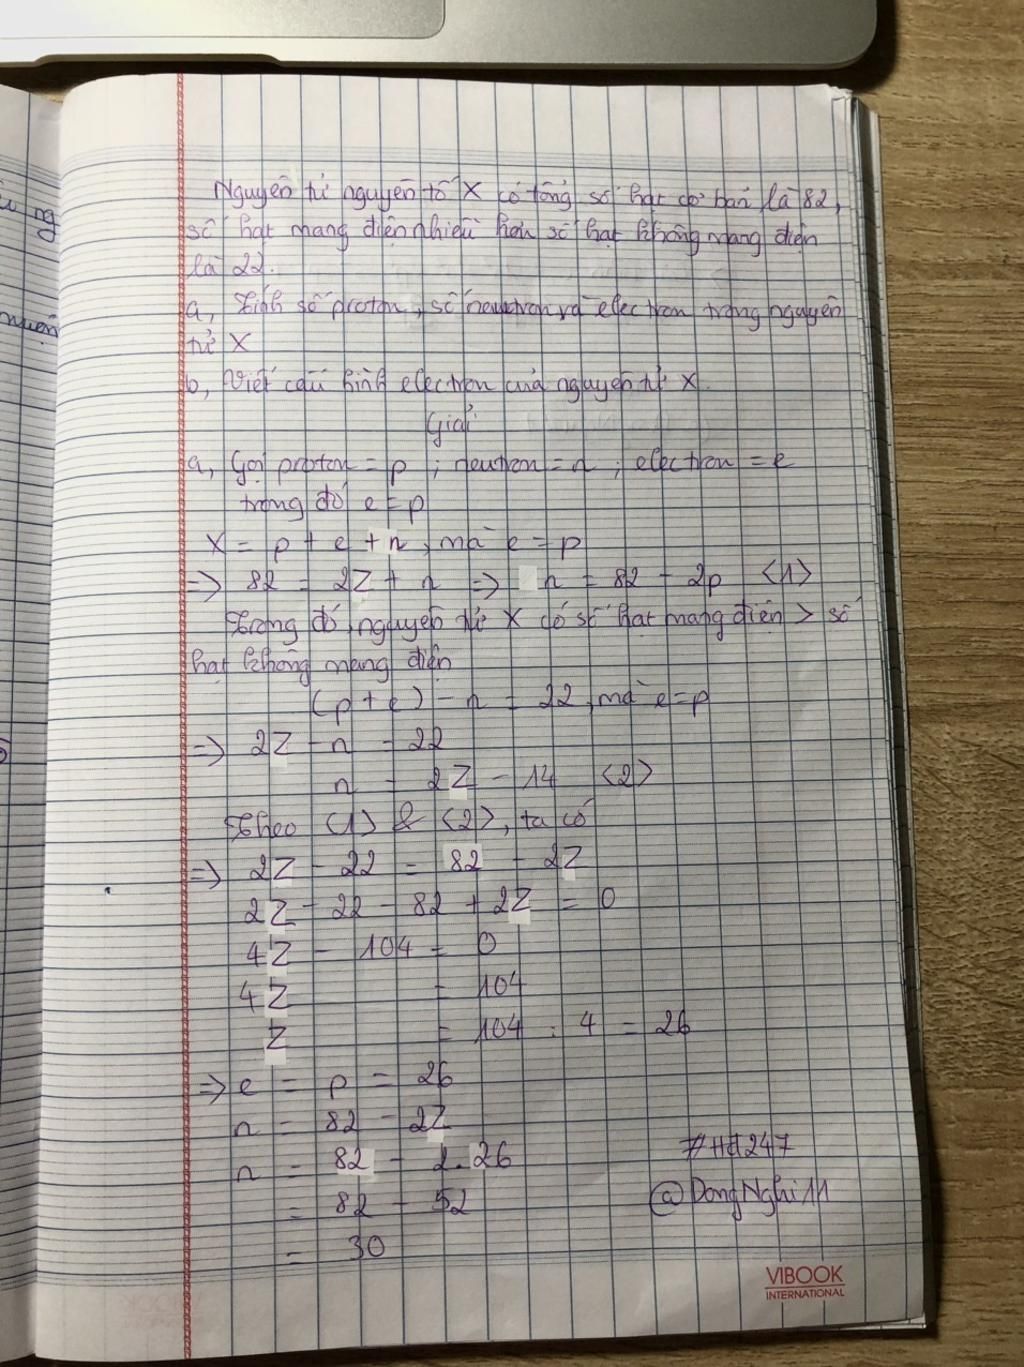 Nguyên tử nguyên tố X có tổng số hạt cơ bản là 82,
số hạt mang điện nhiều hơn số hạt không mang điện
là 22.
a, Tính số proton, số neutron và electron trong nguyên
tử X
b, Viết cấu hình electron của nguyên tử X.
Giải
a, Gọi proton = p ; neutron = n ; electron = e
trong đó e = p
X = p + e + n, mà e = p
=> 82 = 2Z + n => n = 82 - 2p <1>
Trong đó, nguyên tử X có số hạt mang điện > số
hạt không mang điện
(p + e) - n = 22, mà e = p
=> 2Z - n = 22
n = 2Z - 14 <2>
Theo <1> & <2>, ta có
=> 2Z - 22 = 82 - 2Z
2Z - 22 - 82 + 2Z = 0
4Z - 104 = 0
4Z = 104
Z = 104 : 4 = 26
=> e = p = 26
n = 82 - 2Z
n = 82 - 2.26
= 82 - 52
= 30
#Hd247
@DongNghi11
VIBOOK
INTERNATIONAL